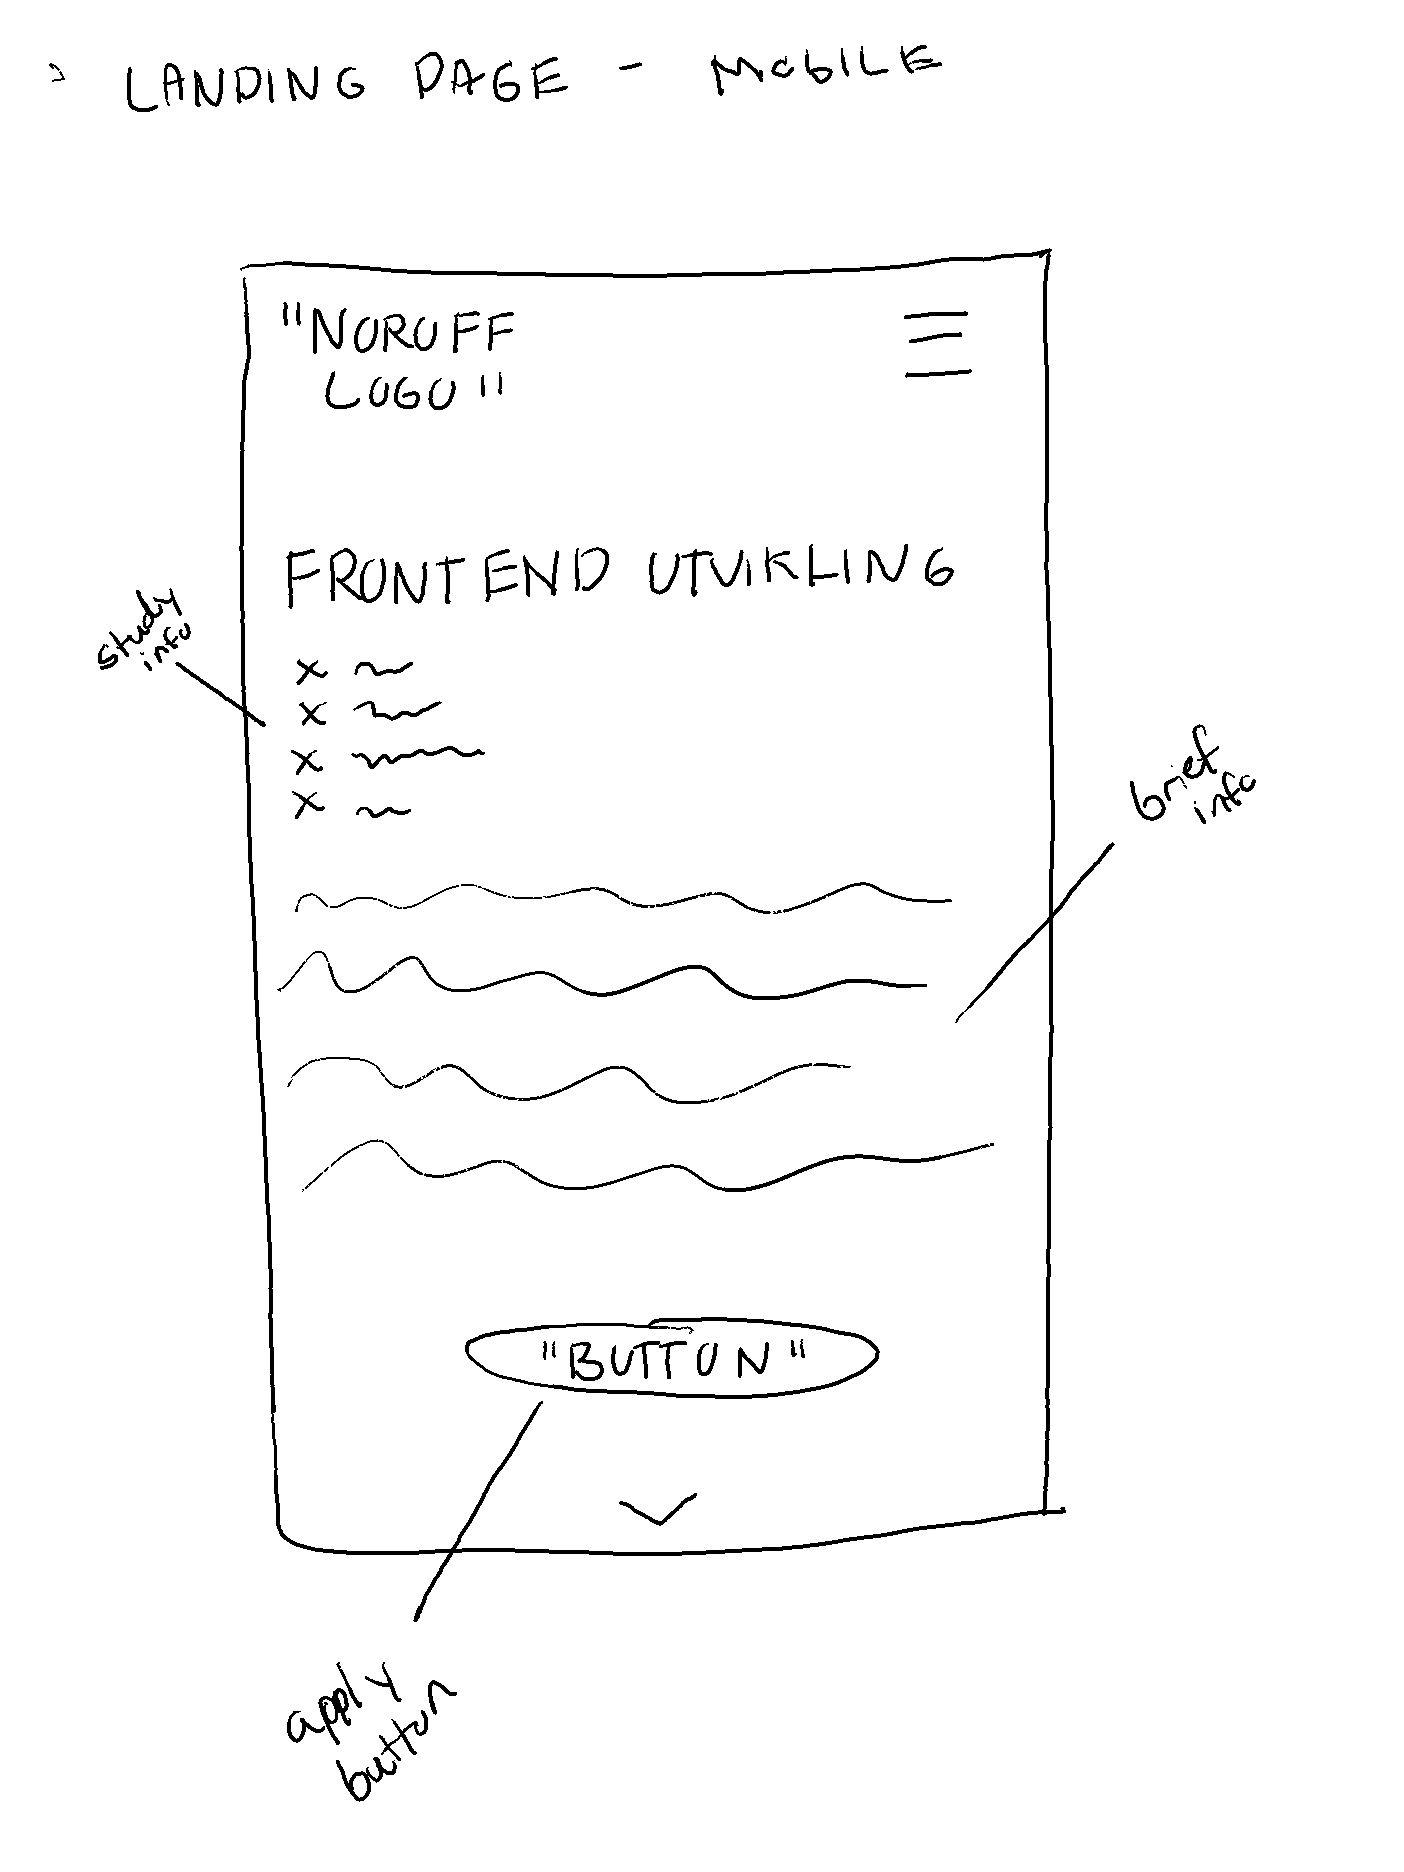 LANDING PAGE - MOBILE
"NOROFF
LOGO"
FRONTEND UTVIKLING
study
info
x
x
x
x
brief
info
"BUTTON"
apply
button